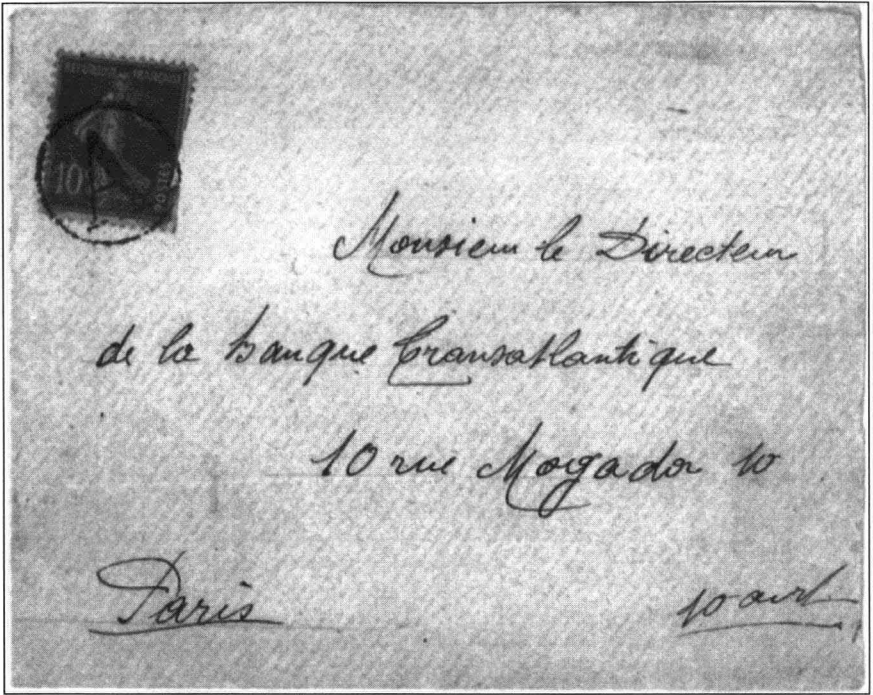 REPUBLIQUE FRANCAISE
10
POSTES
A
Monsieur le Directeur
de la banque Transatlantique
10 rue Mogador 10
Paris
10 arrt